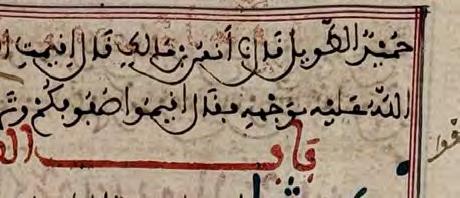 حميد الطويل قال نا أنس بن مالك قال اقيمت ا
الله عليه بوجهه فقال اقيموا صفوفكم وتر
باب ال